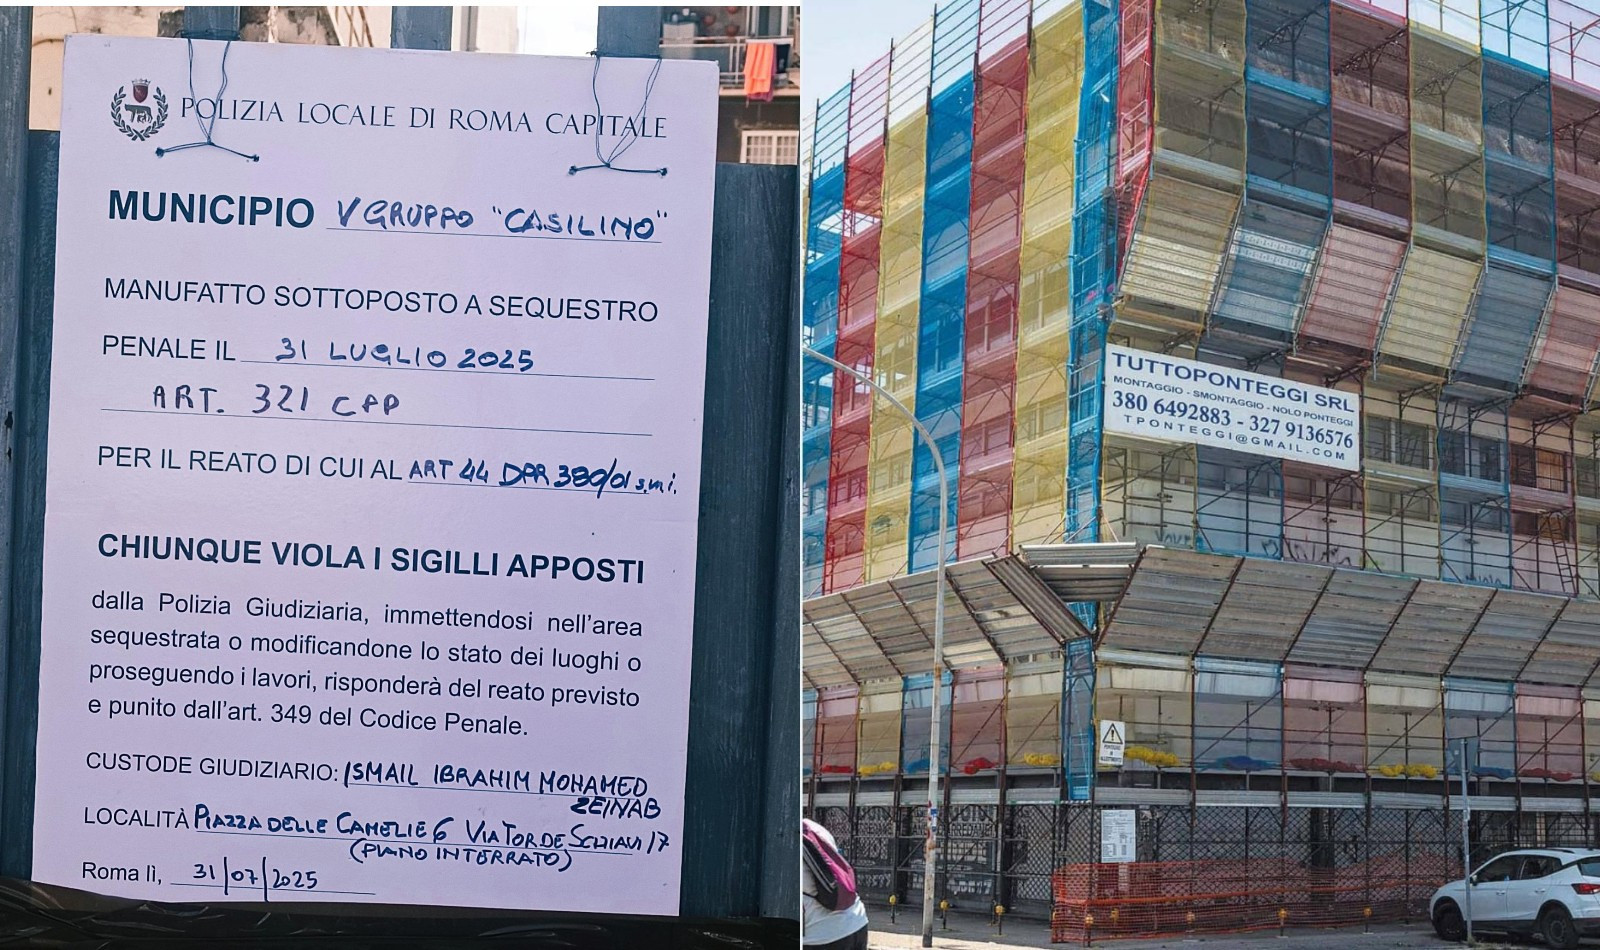 POLIZIA LOCALE DI ROMA CAPITALE
MUNICIPIO V GRUPPO "CASILINO"
MANUFATTO SOTTOPOSTO A SEQUESTRO
PENALE IL 31 LUGLIO 2025
ART. 321 CPP
PER IL REATO DI CUI AL ART 44 DPR 380/01 s.m.i.
CHIUNQUE VIOLA I SIGILLI APPOSTI
dalla Polizia Giudiziaria, immettendosi nell'area
sequestrata o modificandone lo stato dei luoghi o
proseguendo i lavori, risponderà del reato previsto
e punito dall'art. 349 del Codice Penale.
CUSTODE GIUDIZIARIO: ISMAIL IBRAHIM MOHAMED
ZEINAB
LOCALITÀ PIAZZA DELLE CAMELIE 6 VIA TOR DE SCHIAVI 17
(PIANO INTERRATO)
Roma lì, 31/07/2025
TUTTOPONTEGGI SRL
MONTAGGIO - SMONTAGGIO - NOLO PONTEGGI
380 6492883 - 327 9136576
TPONTEGGI@GMAIL.COM